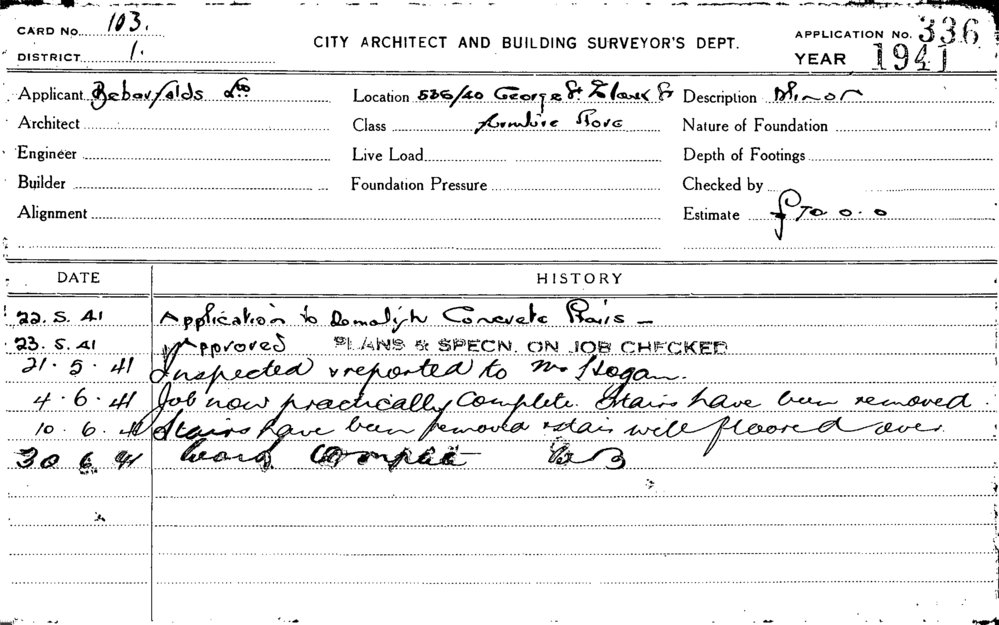 CARD No. 103.
DISTRICT 1.
CITY ARCHITECT AND BUILDING SURVEYOR'S DEPT.
APPLICATION No. 336
YEAR 1941
Applicant Bebarfalds Ltd
Location 536/40 George St & Park St
Description Minor
Architect
Class Furniture Store
Nature of Foundation
Engineer
Live Load
Depth of Footings
Builder
Foundation Pressure
Checked by
Alignment
Estimate £70.0.0
DATE HISTORY
22.5.41 Application to Demolish Concrete Stairs –
23.5.41 Approved PLANS & SPECN. ON JOB CHECKED
21.5.41 Inspected & reported to Mr Hogan.
4.6.41 Job now practically complete. Stairs have been removed.
10.6.41 Stairs have been removed & stair well floored over.
30 6 41 Work Complete